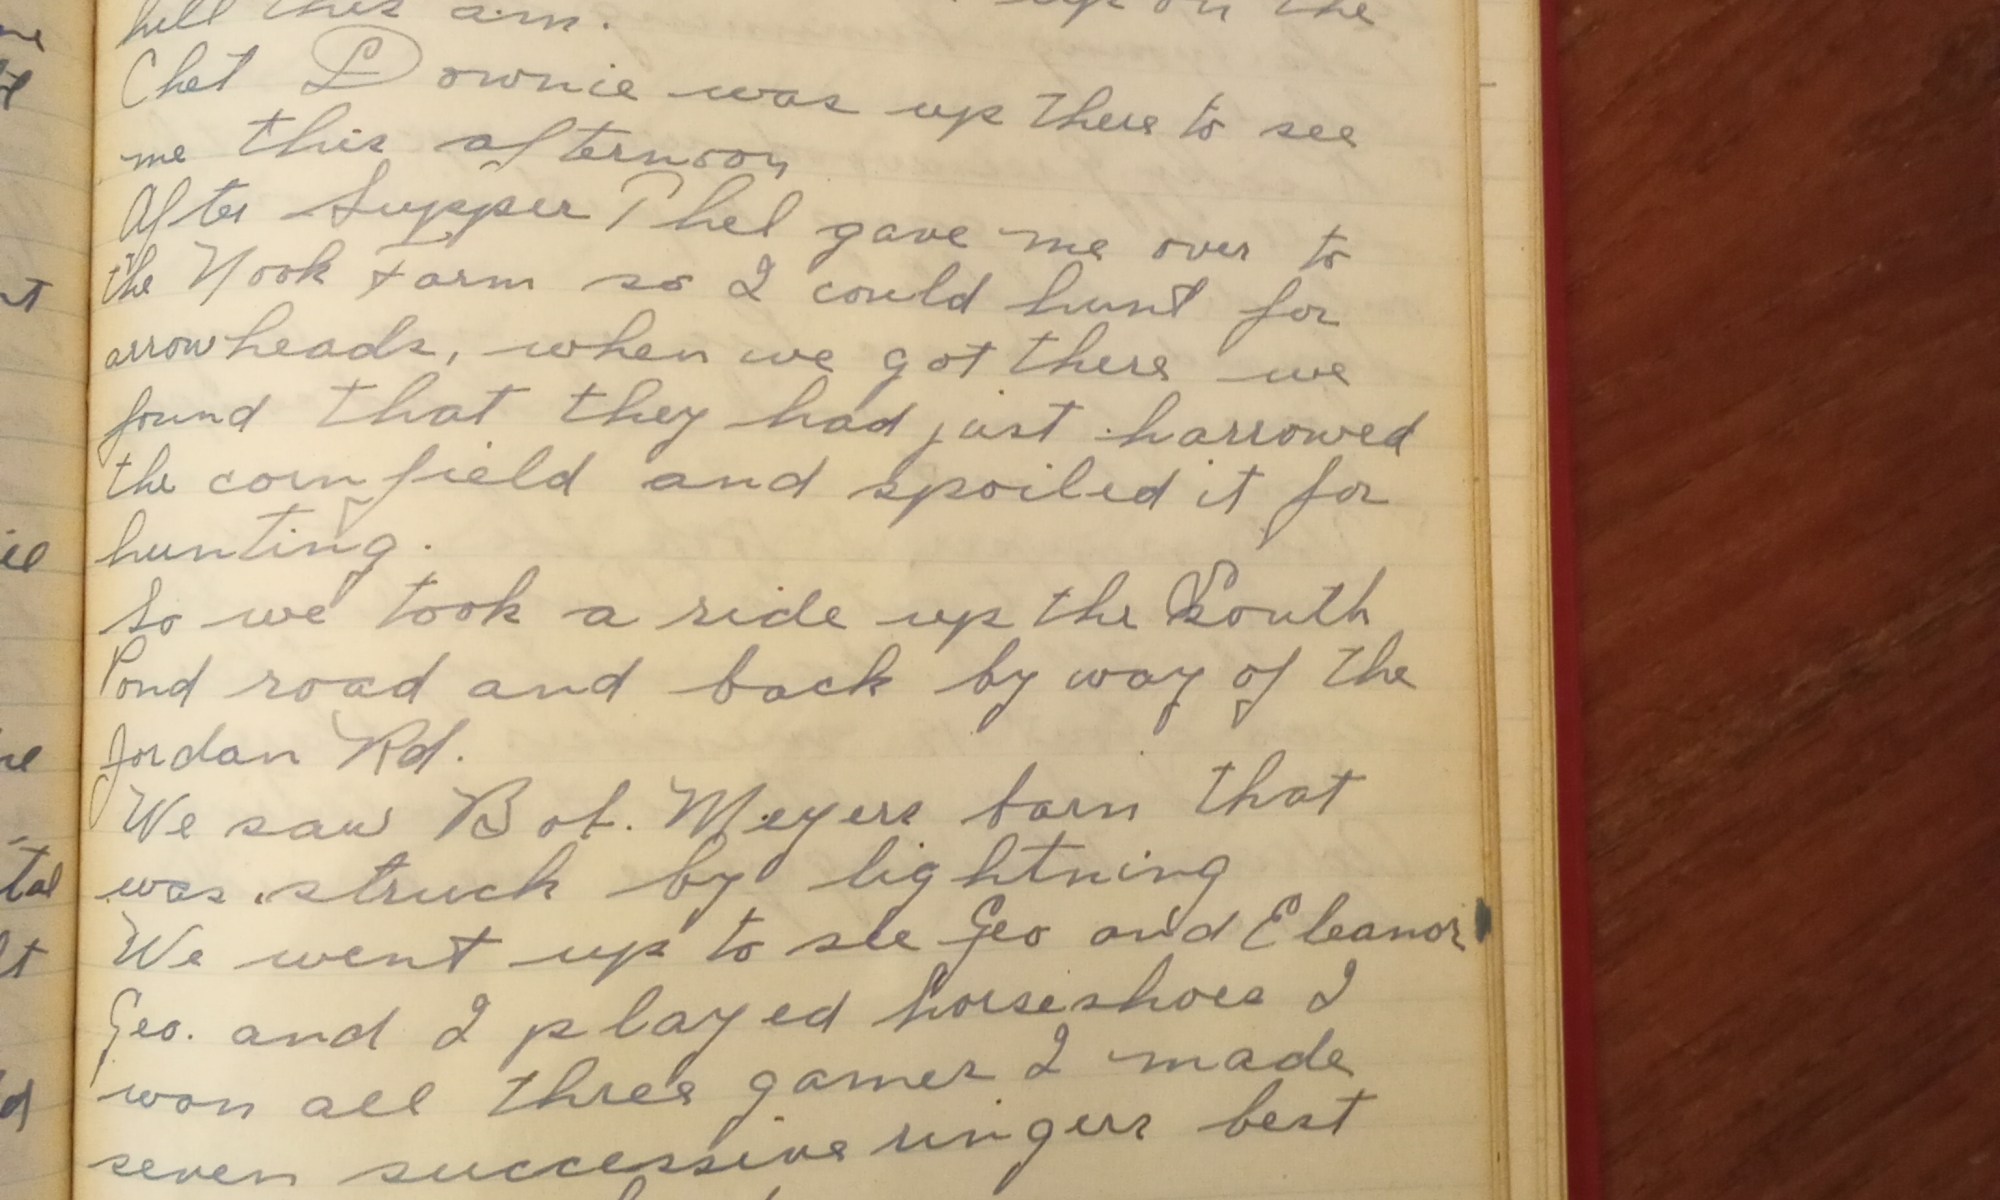 hill this a.m. up on the
Chet Downie was up there to see
me this afternoon
After Supper Phel gave me over to
the Nook Farm so I could hunt for
arrowheads, when we got there we
found that they had just harrowed
the cornfield and spoiled it for
hunting.
So we took a ride up the South
Pond road and back by way of the
Jordan Rd.
We saw Bob. Meyers barn that
was struck by lightning
We went up to see Geo and Eleanor
Geo. and I played horseshoes I
won all three games I made
seven successive ringers best